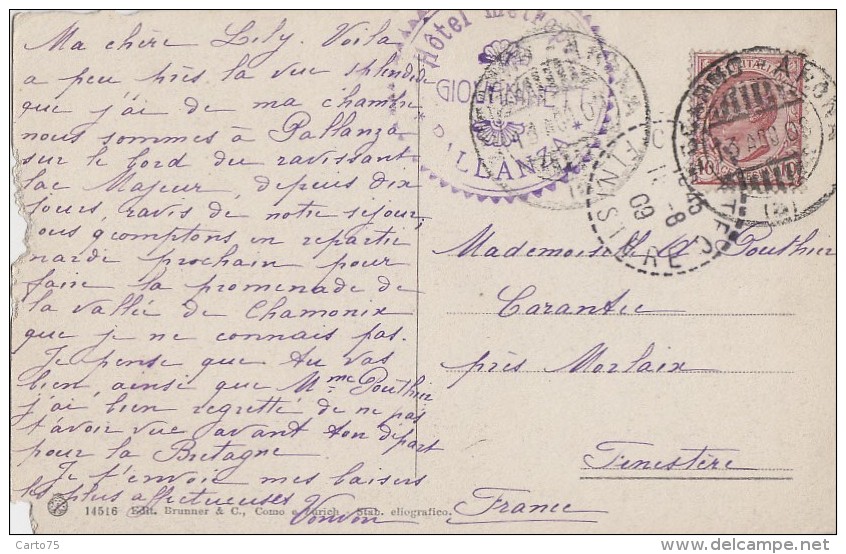 Ma chère Lily. Voila
a peu près la vue splendide
que j'ai de ma chambre
nous sommes à Pallanza
sur le bord du ravissant
lac Majeur, depuis dix
jours, ravis de notre séjour.
ous y comptons en repartir
mardi prochain pour
faire la promenade de
la vallée de Chamonix
que je ne connais pas.
Je pense que tu vas
bien, ainsi que Mme Pouthier
j'ai bien regretté de ne pas
t'avoir vue avant ton départ
pour la Bretagne
Je t'envoie mes baisers
les plus affectueuses
Vonvon
14516 Edit. Brunner & C., Como e Zürich - Stab. eliografico.
Hôtel Métro
GIOV
PALLANZA
Mademoiselle Pouthier
Carantec
près Morlaix
Finestère
France
FINISTERE
11 -8
09
10
Carto75
delcampe.net